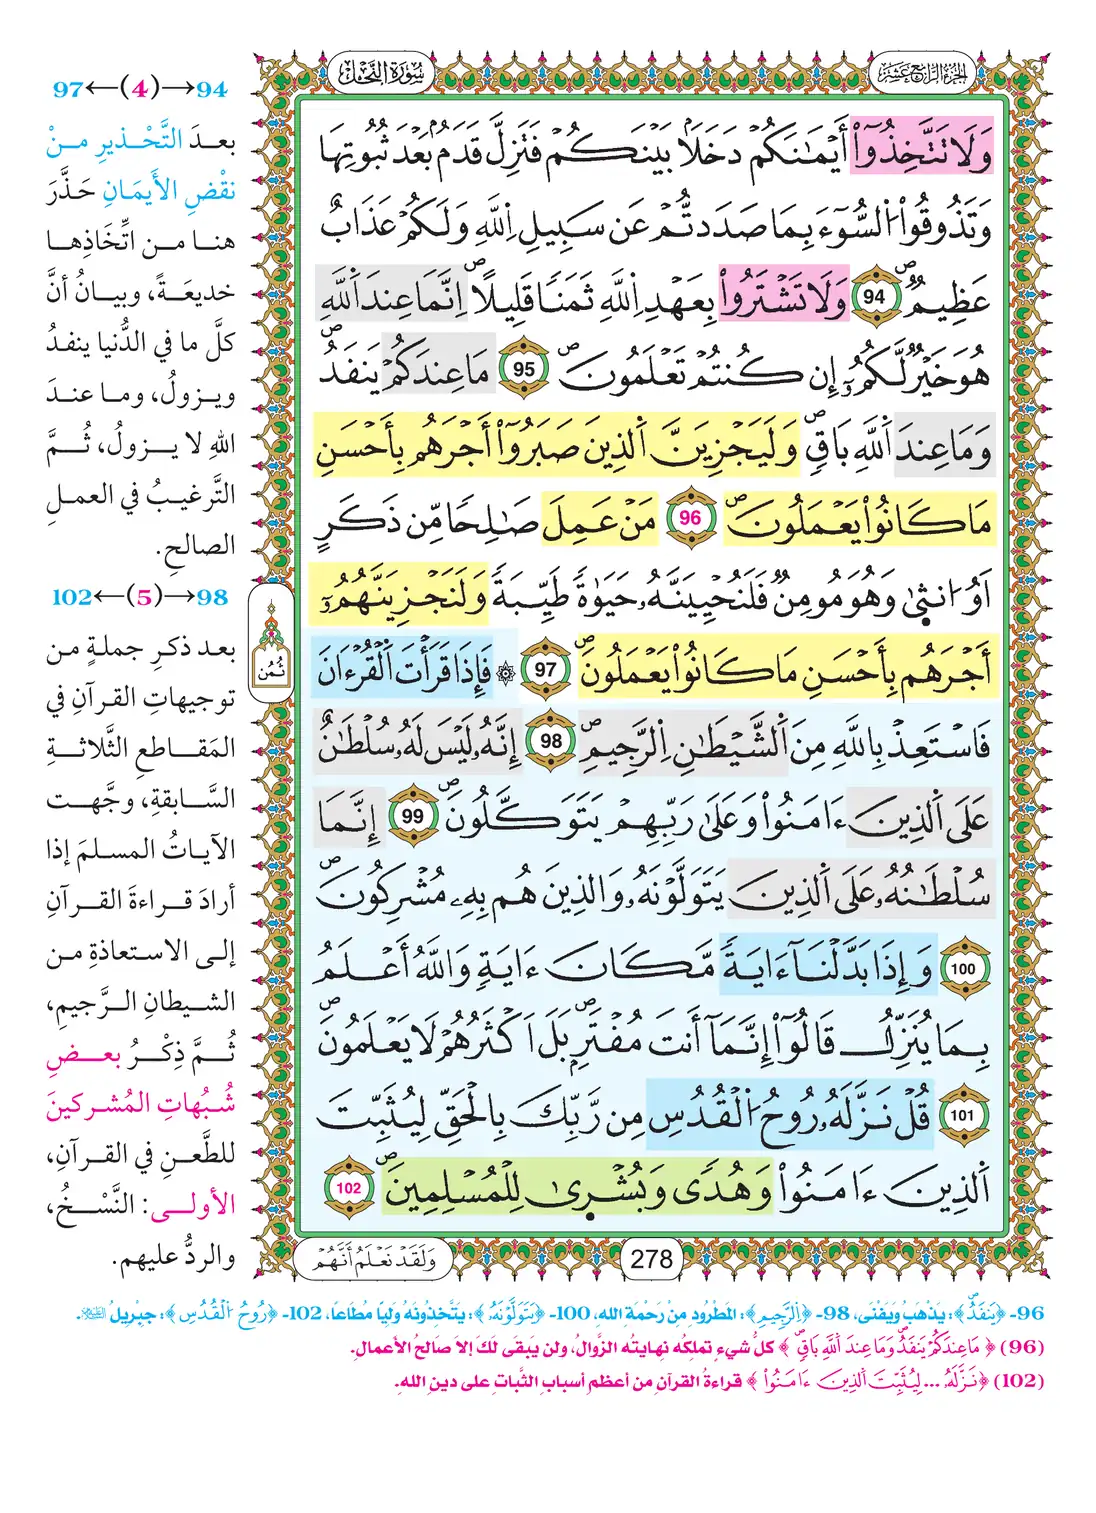 الجزء الرابع عشر
سورة النحل
وَلَا تَتَّخِذُوٓاْ أَيۡمَٰنَكُمۡ دَخَلَۢا بَيۡنَكُمۡ فَتَزِلَّ قَدَمُۢ بَعۡدَ ثُبُوتِهَا
وَتَذُوقُواْ اُ۬لسُّوٓءَ بِمَا صَدَدتُّمۡ عَن سَبِيلِ اِ۬للَّهِ وَلَكُمۡ عَذَابٌ
عَظِيمٞۖ 94 وَلَا تَشۡتَرُواْ بِعَهۡدِ اِ۬للَّهِ ثَمَنٗا قَلِيلًاۖ اِنَّمَا عِندَ اَ۬للَّهِ
هُوَ خَيۡرٞ لَّكُمُۥٓ إِن كُنتُمۡ تَعۡلَمُونَۖ 95 مَا عِندَكُمۡ يَنفَدُۖ
وَمَا عِندَ اَ۬للَّهِ بَاقٖۖ وَلَيَجۡزِيَنَّ اَ۬لذِينَ صَبَرُوٓاْ أَجۡرَهُم بِأَحۡسَنِ
مَا كَانُواْ يَعۡمَلُونَۖ 96 مَنۡ عَمِلَ صَٰلِحٗا مِّن ذَكَرٍ
اَوُ ا۟نث۪ىٰ وَهُوَ مُومِنٞ فَلَنُحۡيِيَنَّهُۥ حَيَوٰةٗ طَيِّبَةٗ وَلَنَجۡزِيَنَّهُمُۥٓ
أَجۡرَهُم بِأَحۡسَنِ مَا كَانُواْ يَعۡمَلُونَۖ 97 ۞ فَإِذَا قَرَأۡتَ اَ۬لۡقُرۡءَانَ
فَاسۡتَعِذۡ بِاللَّهِ مِنَ اَ۬لشَّيۡطَٰنِ اِ۬لرَّجِيمِۖ 98 إِنَّهُۥ لَيۡسَ لَهُۥ سُلۡطَٰنٌ
عَلَى اَ۬لذِينَ ءَامَنُواْ وَعَلَىٰ رَبِّهِمۡ يَتَوَكَّلُونَۖ 99 إِنَّمَا
سُلۡطَٰنُهُۥ عَلَى اَ۬لذِينَ يَتَوَلَّوۡنَهُۥ وَالذِينَ هُم بِهِۦ مُشۡرِكُونَۖ
100 وَإِذَا بَدَّلۡنَآ ءَايَةٗ مَّكَانَ ءَايَةٖ وَاللَّهُ أَعۡلَمُ
بِمَا يُنَزِّلُ قَالُوٓاْ إِنَّمَآ أَنتَ مُفۡتَرِۢۖ بَلَ اَكۡثَرُهُمۡ لَا يَعۡلَمُونَۖ
101 قُلۡ نَزَّلَهُۥ رُوحُ اُ۬لۡقُدُسِ مِن رَّبِّكَ بِالۡحَقِّ لِيُثَبِّتَ
اَ۬لذِينَ ءَامَنُواْ وَهُدٗى وَبُشۡر۪ىٰ لِلۡمُسۡلِمِينَۖ 102
ثُمُن
278
وَلَقَدۡ نَعۡلَمُ أَنَّهُمۡ
94→(4)←97
بعدَ التَّحْذيرِ منْ
نقْضِ الأَيمَانِ حَذَّرَ
هنا من اتِّخَاذِها
خديعَةً، وبيانُ أنَّ
كلَّ ما في الدُّنيا ينفدُ
ويزولُ، وما عندَ
اللهِ لا يزولُ، ثُمَّ
التَّرغيبُ في العملِ
الصالحِ.
98→(5)←102
بعد ذكرِ جملةٍ من
توجيهاتِ القرآنِ في
المَقاطعِ الثَّلاثةِ
السَّابقةِ، وجَّهت
الآياتُ المسلمَ إذا
أرادَ قراءةَ القرآنِ
إلى الاستعاذةِ من
الشيطانِ الرَّجيمِ،
ثُمَّ ذِكْرُ بعضِ
شُبُهاتِ المُشركينَ
للطَّعنِ في القرآنِ،
الأولى: النَّسْخُ،
والردُّ عليهم.
96- ﴿يَنفَدُۖ﴾: يَذهَبُ وَيَفْنَى، 98- ﴿اِ۬لرَّجِيمِۖ﴾: المَطْرُودِ مِنْ رَحْمَةِ الله، 100- ﴿يَتَوَلَّوۡنَهُۥ﴾: يَتَّخِذُونَهُ وَلِيّاً مُطَاعاً، 102- ﴿رُوحُ اُ۬لۡقُدُسِ﴾: جِبْرِيلُ عليه السلام.
(96) ﴿مَا عِندَكُمۡ يَنفَدُۖ وَمَا عِندَ اَ۬للَّهِ بَاقٖۖ﴾ كلُّ شيءٍ تملكُه نهايتُه الزَّوالُ، ولن يبقَى لكَ إلا صَالحُ الأعمالِ.
(102) ﴿نَزَّلَهُۥ ... لِيُثَبِّتَ اَ۬لذِينَ ءَامَنُواْ﴾ قراءةُ القرآنِ من أعظمِ أسبابِ الثَّباتِ على دينِ اللهِ.